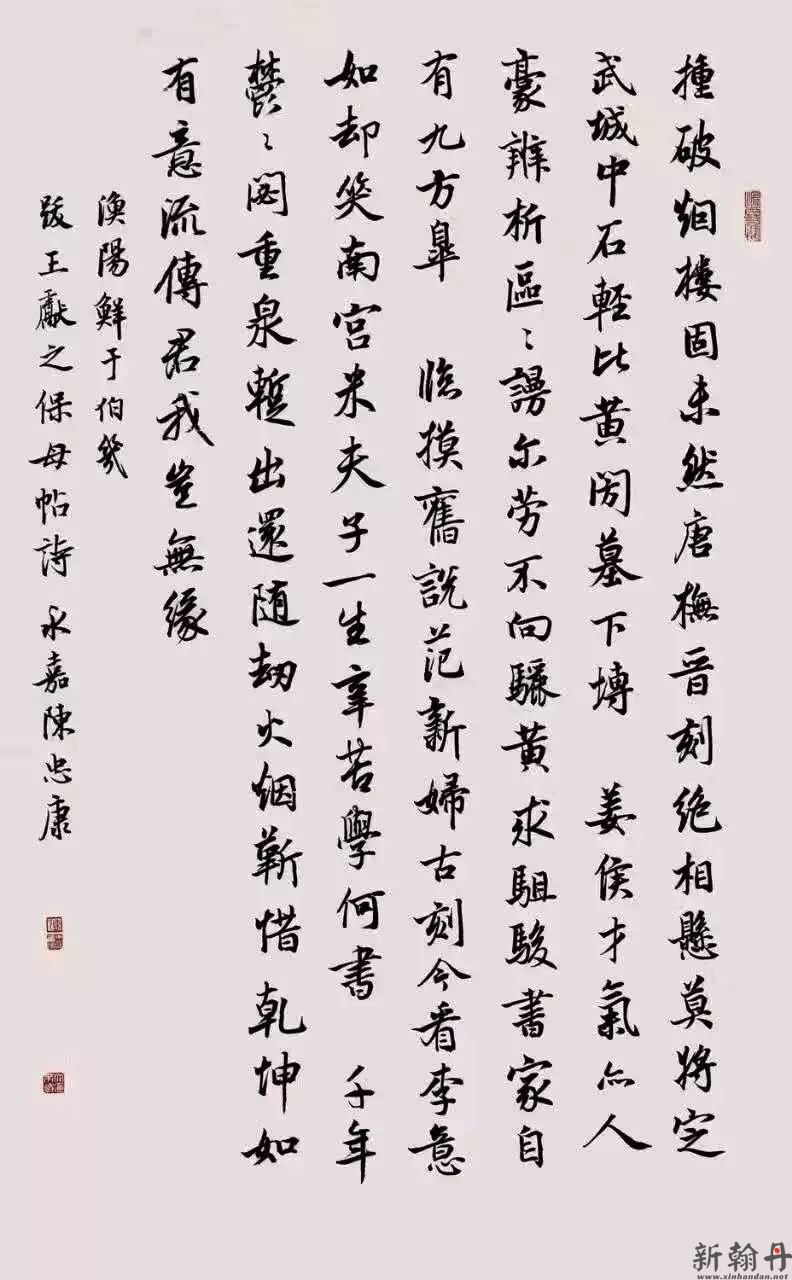 捶破烟樓固未然唐橅晉刻絶相懸莫將定
武城中石輕比黄閍墓下塼 姜侯才氣亦人
豪辨析區〻謾尔劳不向驪黄求駔駿書家自
有九方臯 臨摸舊説范新婦古刻今看李意
如却笑南宫米夫子一生辛苦學何書 千年
鬱〻閟重泉暫出還随劫火烟蘄惜乾坤如
有意流傳君我豈無緣
漁陽鮮于伯幾
跋王獻之保母帖詩 永嘉陳忠康
新翰丹
www.xinhandan.net